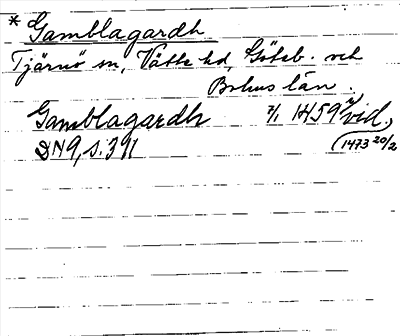 * Gamblagardh
Tjärnö sn, Vätte hd, Göteb. och
Bohus län.
Gamblagardh 7/1 1459 vid.
DN9, s. 391 (1473 20/2